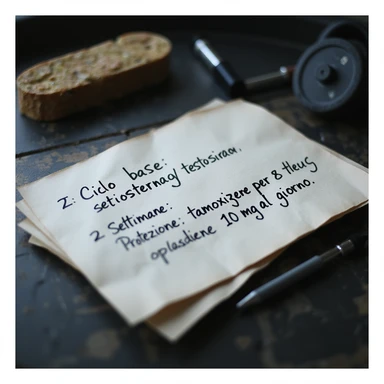 Z: Ciclo base:
setiosternag testosiraor.
2 Settimane:
Protezione: tamoxizere per 8 tleus
oplasdiene 10 mg al giorno.